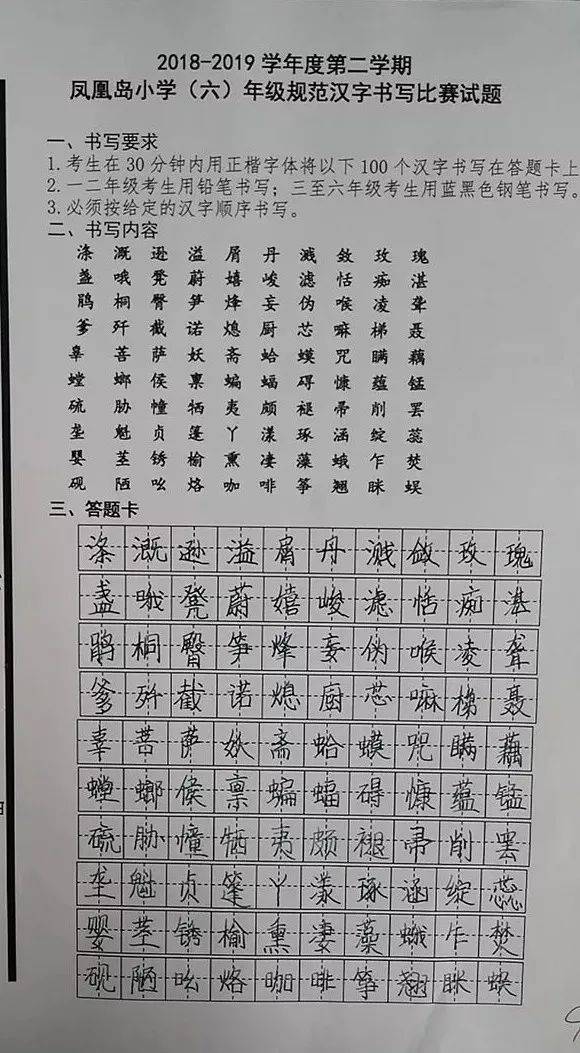 2018-2019 学年度第二学期
凤凰岛小学（六）年级规范汉字书写比赛试题
一、书写要求
1.考生在30分钟内用正楷字体将以下100个汉字书写在答题卡上
2.一二年级考生用铅笔书写；三至六年级考生用蓝黑色钢笔书写。
3.必须按给定的汉字顺序书写。
二、书写内容
涤 溉 逊 溢 屑 丹 溅 敛 玫 瑰
盏 哦 凳 蔚 嬉 峻 滤 恬 痴 湛
鹃 桐 臀 笋 烽 妄 伪 喉 凌 聋
爹 歼 截 诺 熄 厨 芯 嘛 梯 聂
辜 菩 萨 妖 斋 蛤 蟆 咒 瞒 藕
螳 螂 侯 禀 蝙 蝠 碍 慷 蕴 锰
硫 胁 幢 牺 夷 颇 褪 帚 削 罢
垄 魁 贞 篷 丫 漾 琢 涵 绽 蕊
婴 茎 锈 榆 熏 凄 藻 蛾 乍 焚
砚 陋 吆 烙 咖 啡 筝 翘 眯 蜈
三、答题卡
涤 溉 逊 溢 屑 丹 溅 敛 玫 瑰
盏 哦 凳 蔚 嬉 峻 滤 恬 痴 湛
鹃 桐 臀 笋 烽 妄 伪 喉 凌 聋
爹 歼 截 诺 熄 厨 芯 嘛 梯 聂
辜 菩 萨 妖 斋 蛤 蟆 咒 瞒 藕
螳 螂 侯 禀 蝙 蝠 碍 慷 蕴 锰
硫 胁 幢 牺 夷 颇 褪 帚 削 罢
垄 魁 贞 篷 丫 漾 琢 涵 绽 蕊
婴 茎 锈 榆 熏 凄 藻 蛾 乍 焚
砚 陋 吆 烙 咖 啡 筝 翘 眯 蜈